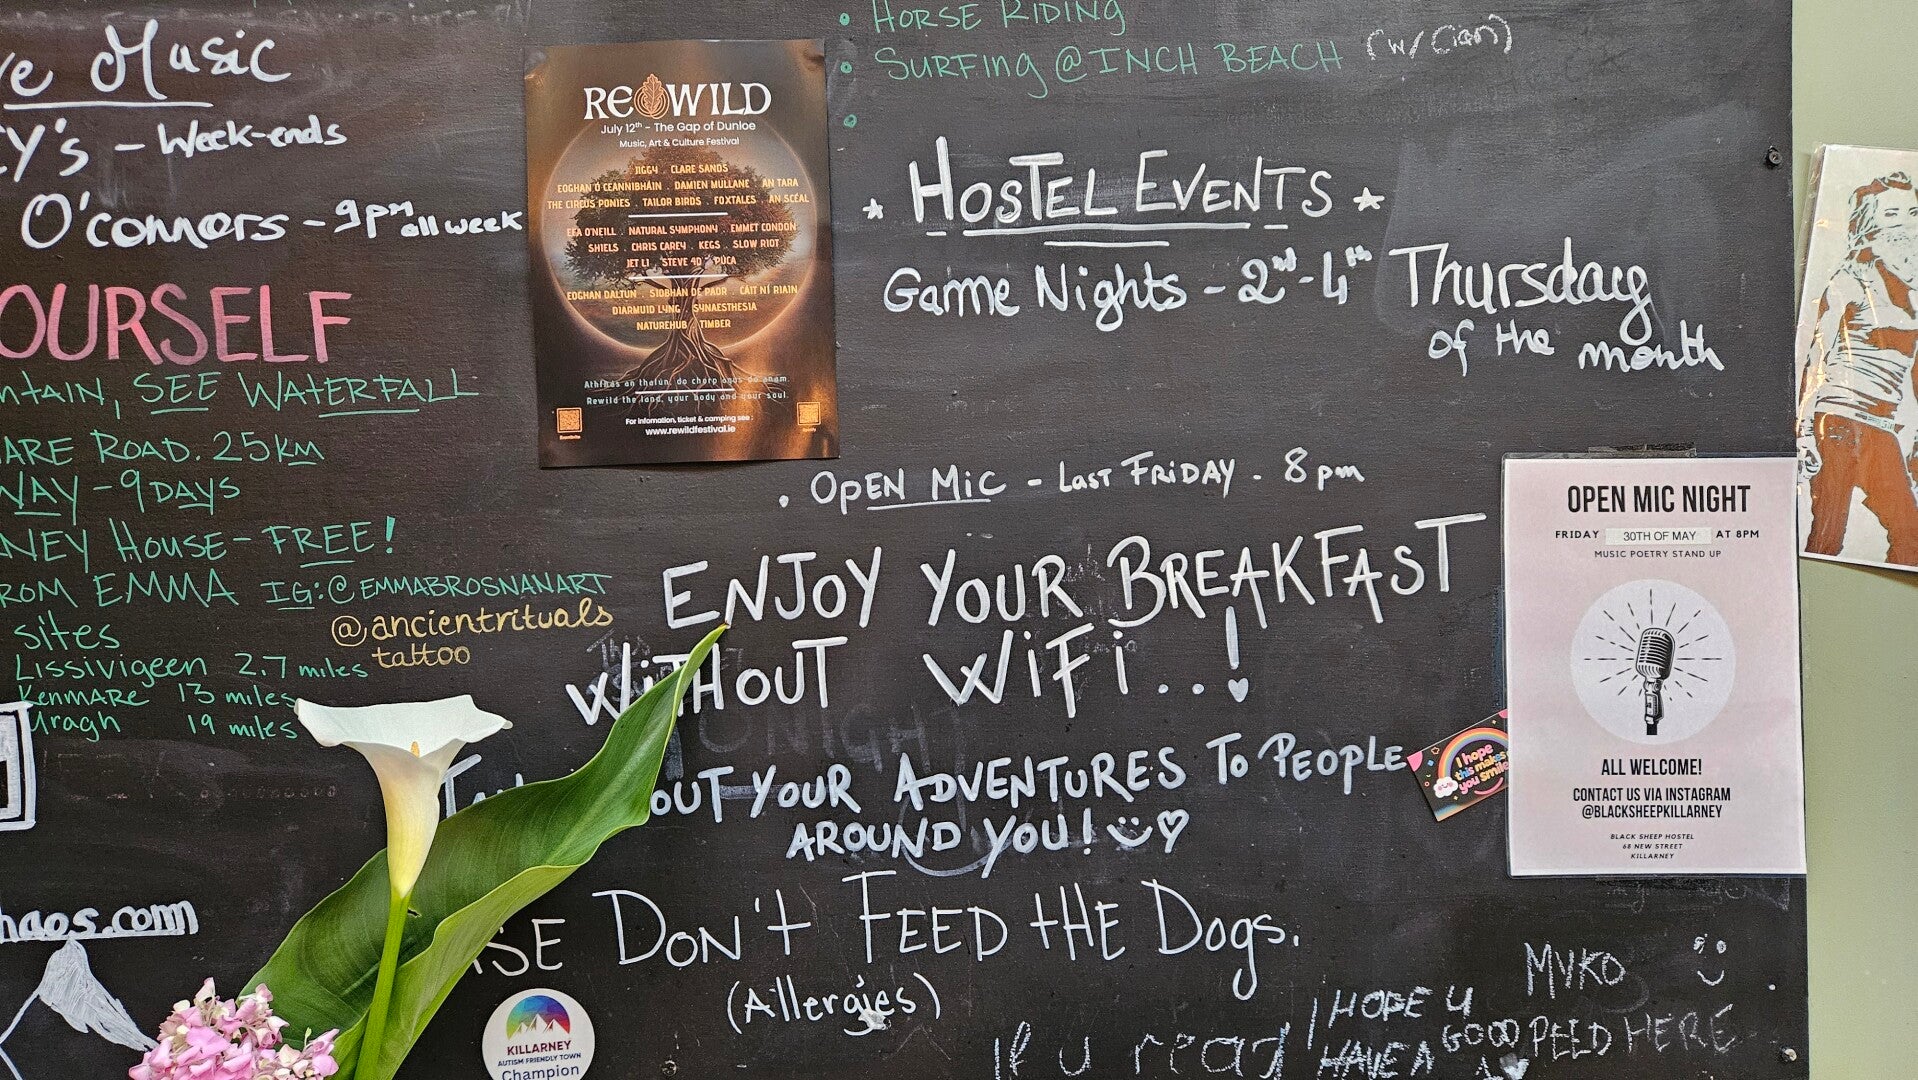 Music
- Week-ends
O'connors - 9pm all week
OURSELF
SEE WATERFALL
ROAD. 25KM
WAY - 9 DAYS
HOUSE - FREE!
EMMA IG:@EMMABROSNANART
@ancientrituals
tattoo
sites
Lissivigeen 2.7 miles
Kenmare 13 miles
Uragh 19 miles
haos.com
REWILD
July 12th - The Gap of Dunloe
Music, Art & Culture Festival
JIGGY . CLARE SANDS
EOGHAN Ó CEANNABHÁIN . DAMIEN MULLANE . AN TARA
THE CIRCUS PONIES . TAILOR BIRDS . FOXTALES . AN SCÉAL
EFA O'NEILL . NATURAL SYMPHONY . EMMET CONDON
SHIELS . CHRIS CAREY . KEGS . SLOW RIOT
JET LI . STEVE 4D . PÚCA
EOGHAN DALTUN . SIOBHÁN DE PAOR . CÁIT NÍ RIAIN
DIARMUID LYNG . SYNAESTHESIA
NATUREHUB . TIMBER
Athfhás an thalún, do chorp agus do anam.
Rewild the land, your body and your soul.
For infomation, ticket & camping see :
www.rewildfestival.ie
• HORSE RIDING
• SURFING @ INCH BEACH (w/ Cian)
•
HOSTEL EVENTS
Game Nights - 2nd - 4th Thursday
of the month
. OPEN MIC - LAST FRIDAY - 8pm
ENJOY YOUR BREAKFAST
WITHOUT WIFI...!
OUT YOUR ADVENTURES TO PEOPLE
AROUND YOU!
DON'T FEED THE DOGS.
(Allergies)
KILLARNEY
AUTISM FRIENDLY TOWN
Champion
I hope
this makes
you smile
OPEN MIC NIGHT
FRIDAY 30TH OF MAY AT 8PM
MUSIC POETRY STAND UP
ALL WELCOME!
CONTACT US VIA INSTAGRAM
@BLACKSHEEPKILLARNEY
BLACK SHEEP HOSTEL
68 NEW STREET
KILLARNEY
MYKO
If u read
I HOPE U
HAVE A GOOD
HERE